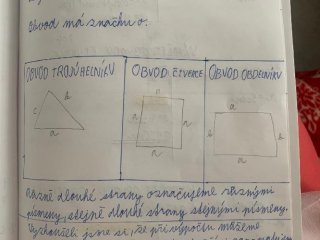 Obvod má značku o.
OBVOD TROJÚHELNÍKU OBVOD ČTVERCE OBVOD OBDELNÍKU
c b a
a
a a a
b b
a a
Různě dlouhé strany označujeme různými
písmeny, stejně dlouhé strany stejnými písmeny.
Vyzkoušeli jsme si, že při výpočtu můžeme